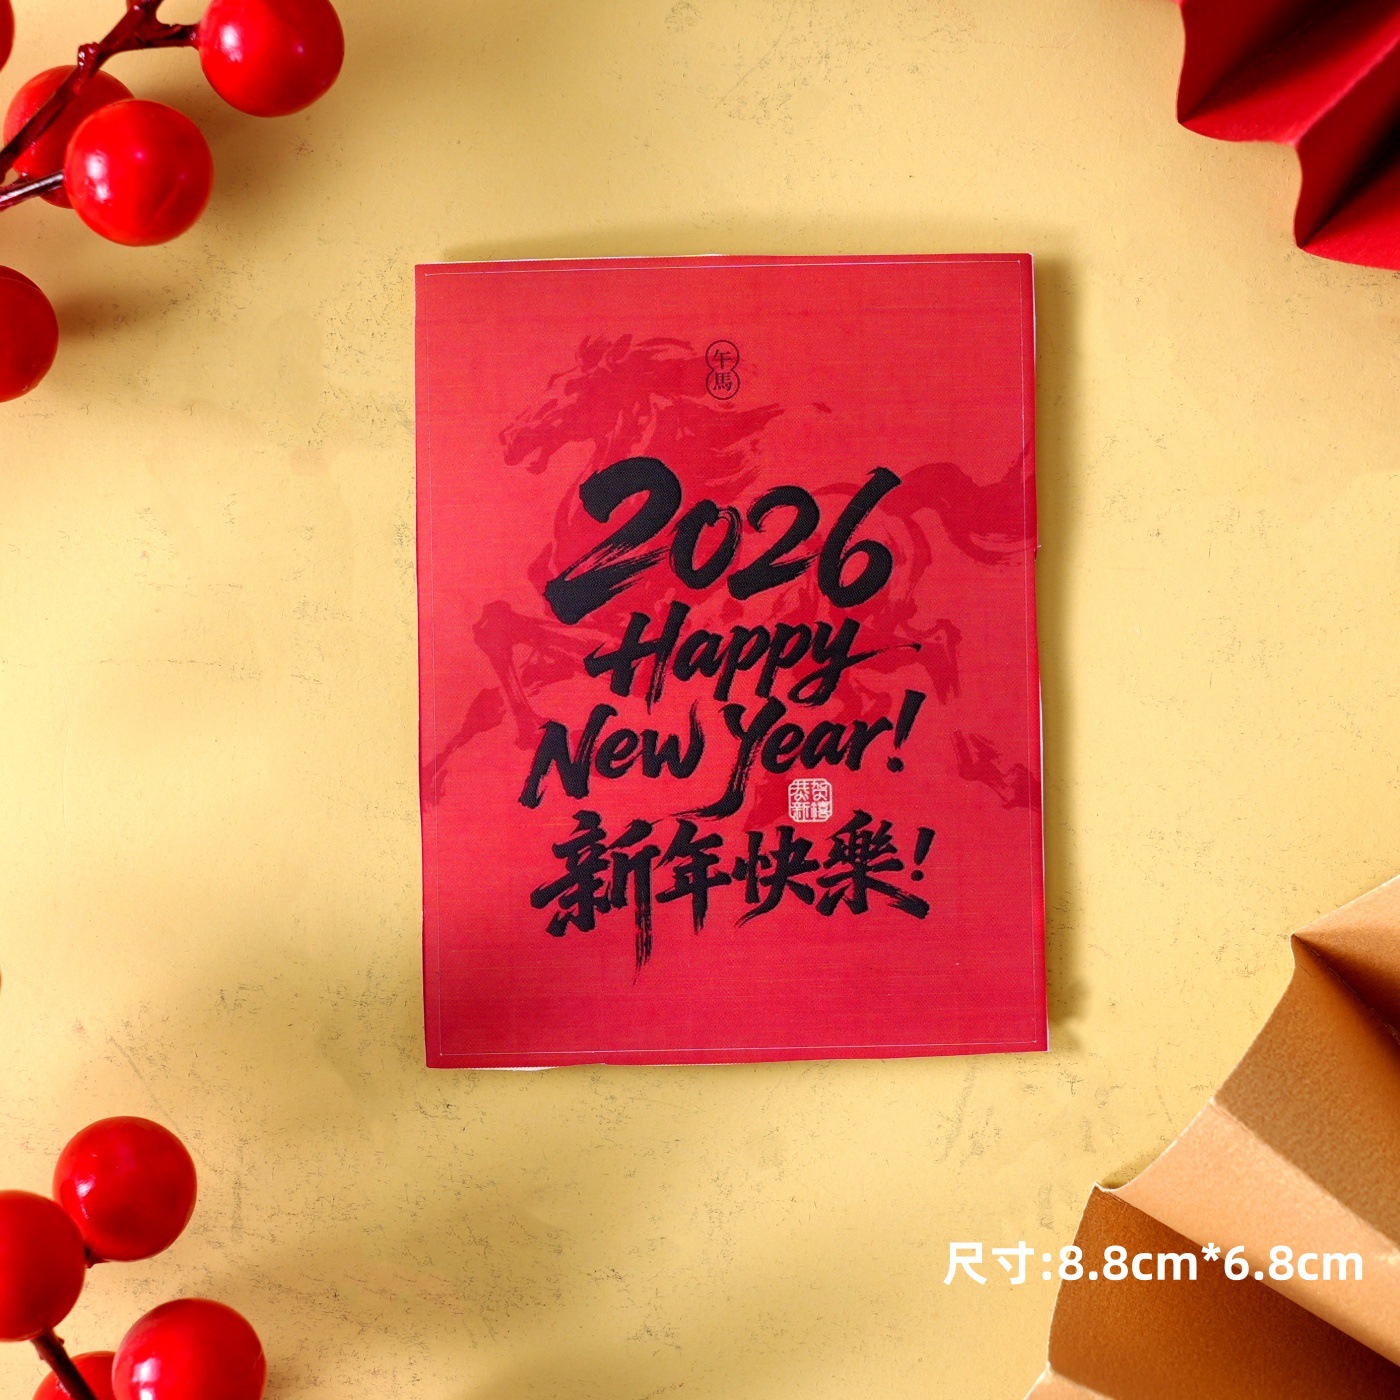 午
馬
2026
Happy
New Year!
恭賀
新禧
新年快樂!
尺寸:8.8cm*6.8cm